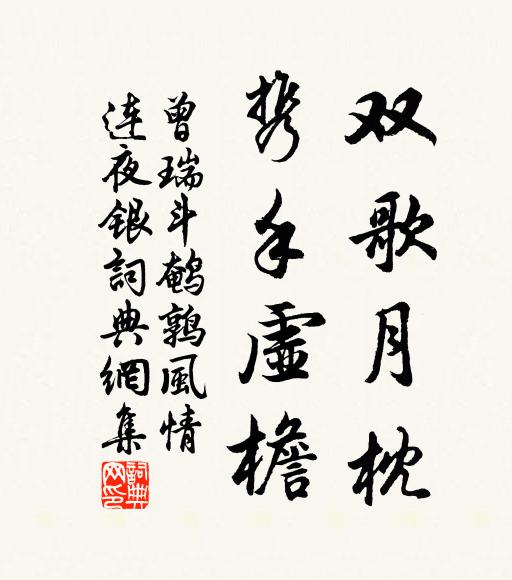 双歌月枕
携手虚檐
曾瑞斗鹌鹑風情
連夜银詞典網集
詞典网印